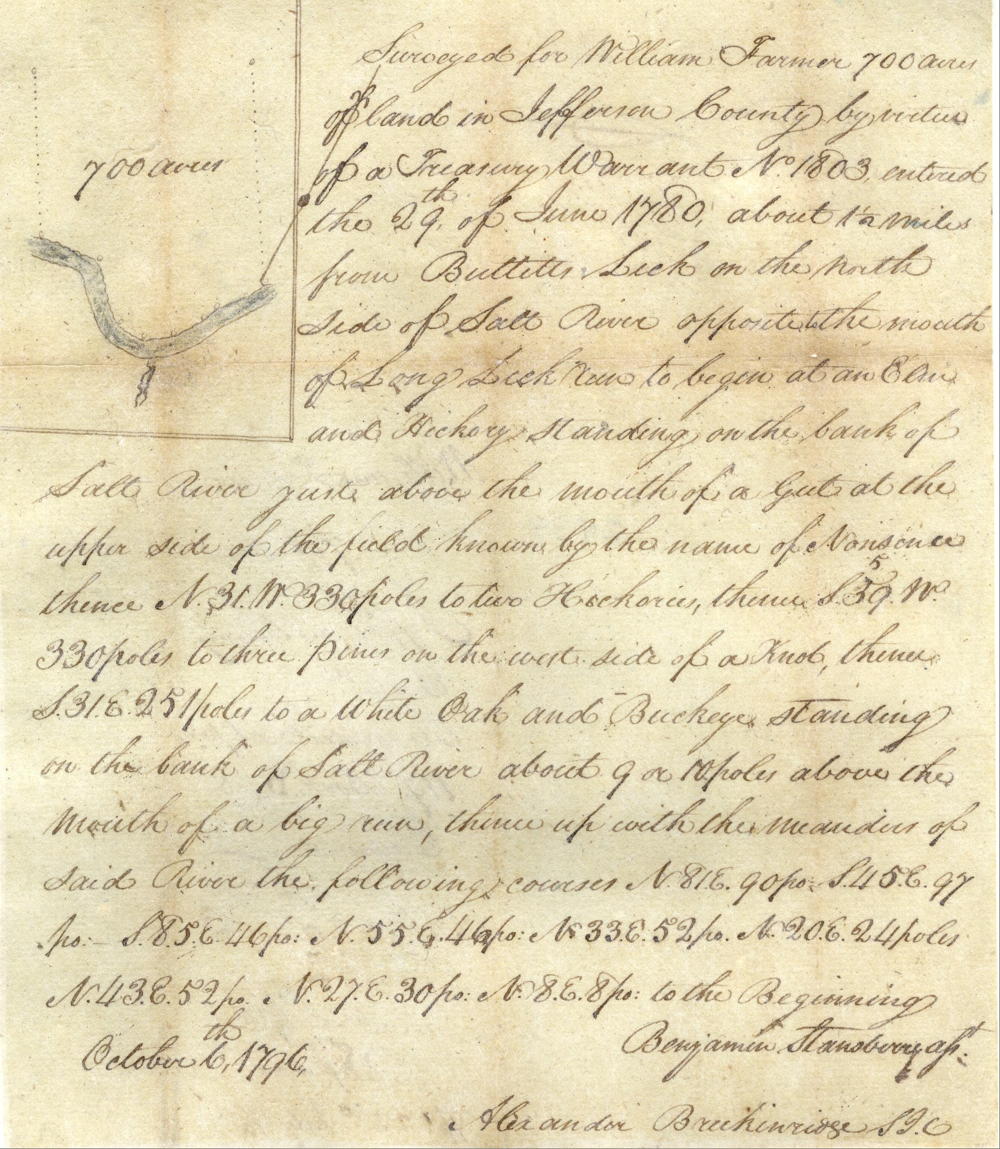 700 acres
Surveyed for William Farmer 700 acres
of land in Jefferson County by virtue
of a Treasury Warrant No. 1803, entered
the 29th of June 1780, about 1½ miles
from Bulletts Lick on the North
side of Salt River opposite the mouth
of Long Lick Run to begin at an Elm
and Hickory standing on the bank of
Salt River just above the mouth of a Gut at the
upper side of the field known by the name of Nonsence
thence N. 31. W. 330 poles to two Hickories, thence S. 59. W.
330 poles to three Pines on the west side of a Knob, thence
S. 31. E. 251 poles to a White Oak and Buckeye standing
on the bank of Salt River about 9 or 10 poles above the
Mouth of a big run, thence up with the meanders of
said River the following courses N. 81 E. 90 po: S. 45. E. 97
po:– S. 85. E. 46 po: N. 55 E. 46 po: N. 33. E. 52 po. N. 20. E. 24 poles
N. 43. E. 52 po. N. 27. E. 30 po: N. 8. E. 8 po: to the Beginning
October 6th, 1796, Benjamin Stansberry asst:
Alexander Breckinridge S J. C